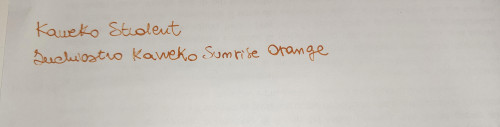 Kaweko Student
Inchiostro Kaweko Sunrise Orange